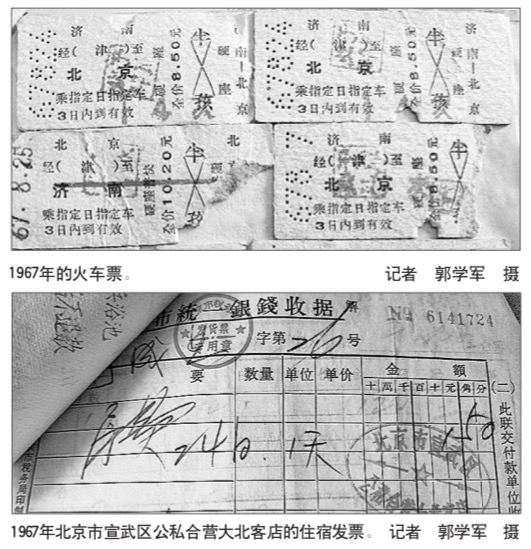 济南
经(津)至
北京
硬座
全价8.50元
半
孩
硬座
南—北京
乘指定日指定车
3日内到有效
济南
经(津)至
北京
硬座
全价8.50元
半
孩
硬座
济南—北京
乘指定日指定车
3日内到有效
67.8.25
北京
经(津)至
济南
全价10.20元
半
孩
北
乘指定日指定车
3日内到有效
济南
经(津)至
北京
全价8.50元
半
孩
乘指定日指定车
3日内到有效
1967年的火车票。 记者 郭学军 摄
市統一銀錢收据
№ 6141724
发货票
专用章
字第26号
要 数量 单位 单价 金額
十萬千百十元角分
1天
150
(二)此联交付款单位收
北京市宣武区
市税务局印制
1967年北京市宣武区公私合营大北客店的住宿发票。 记者 郭学军 摄